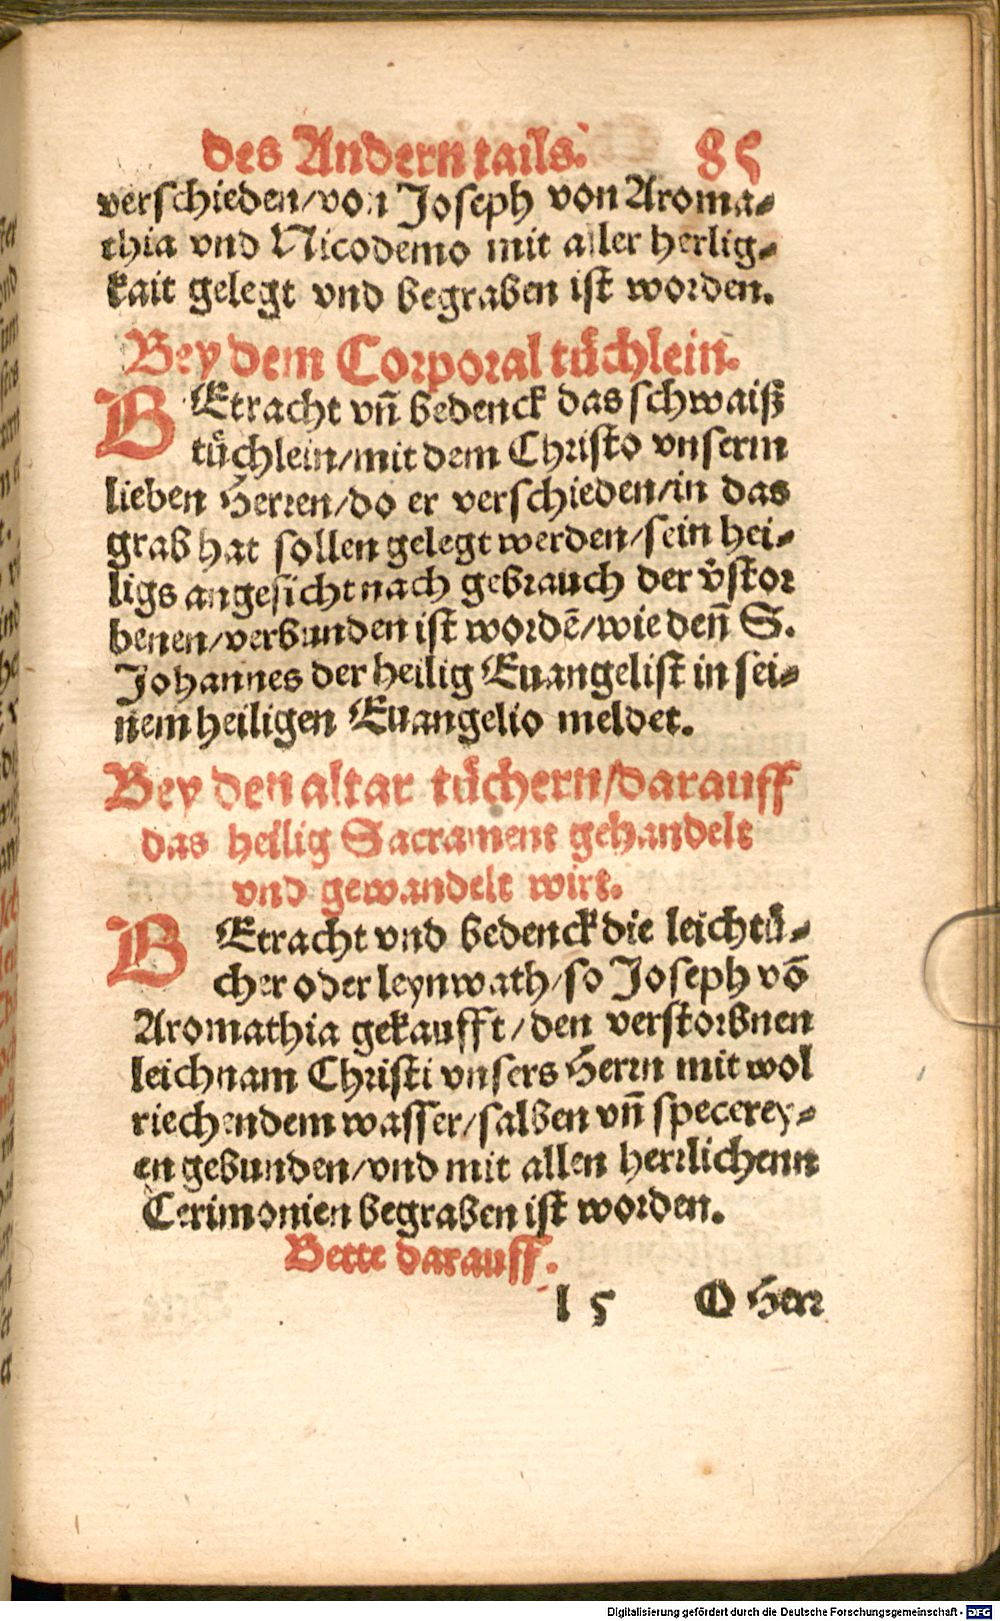 des Andern tails. 85
verschieden/von Joseph von Aroma-
thia vnd Nicodemo mit aller herlig-
kait gelegt vnd begraben ist worden.
Bey dem Corporal tuͤchlein.
BEtracht vñ bedenck das schwaiß
tuͤchlein/mit dem Christo vnserm
lieben Herren/do er verschieden/in das
grab hat sollen gelegt werden/sein hei-
ligs angesicht nach gebrauch der v̄stor
benen/verbunden ist wordē/wie deñ S.
Johannes der heilig Euangelist in sei-
nem heiligen Euangelio meldet.
Bey den altar tuͤchern/darauff
das heilig Sacrament gehandelt
vnd gewandelt wirt.
BEtracht vnd bedenck die leichtuͤ-
cher oder leynwath/so Joseph vō
Aromathia gekaufft/den verstorbnen
leichnam Christi vnsers Herrn mit wol
riechendem wasser/salben vñ specerey-
en gebunden/vnd mit allen herrlichenn
Cerimonien begraben ist worden.
Bette darauff.
l 5 O Herr
Digitalisierung gefördert durch die Deutsche Forschungsgemeinschaft - DFG